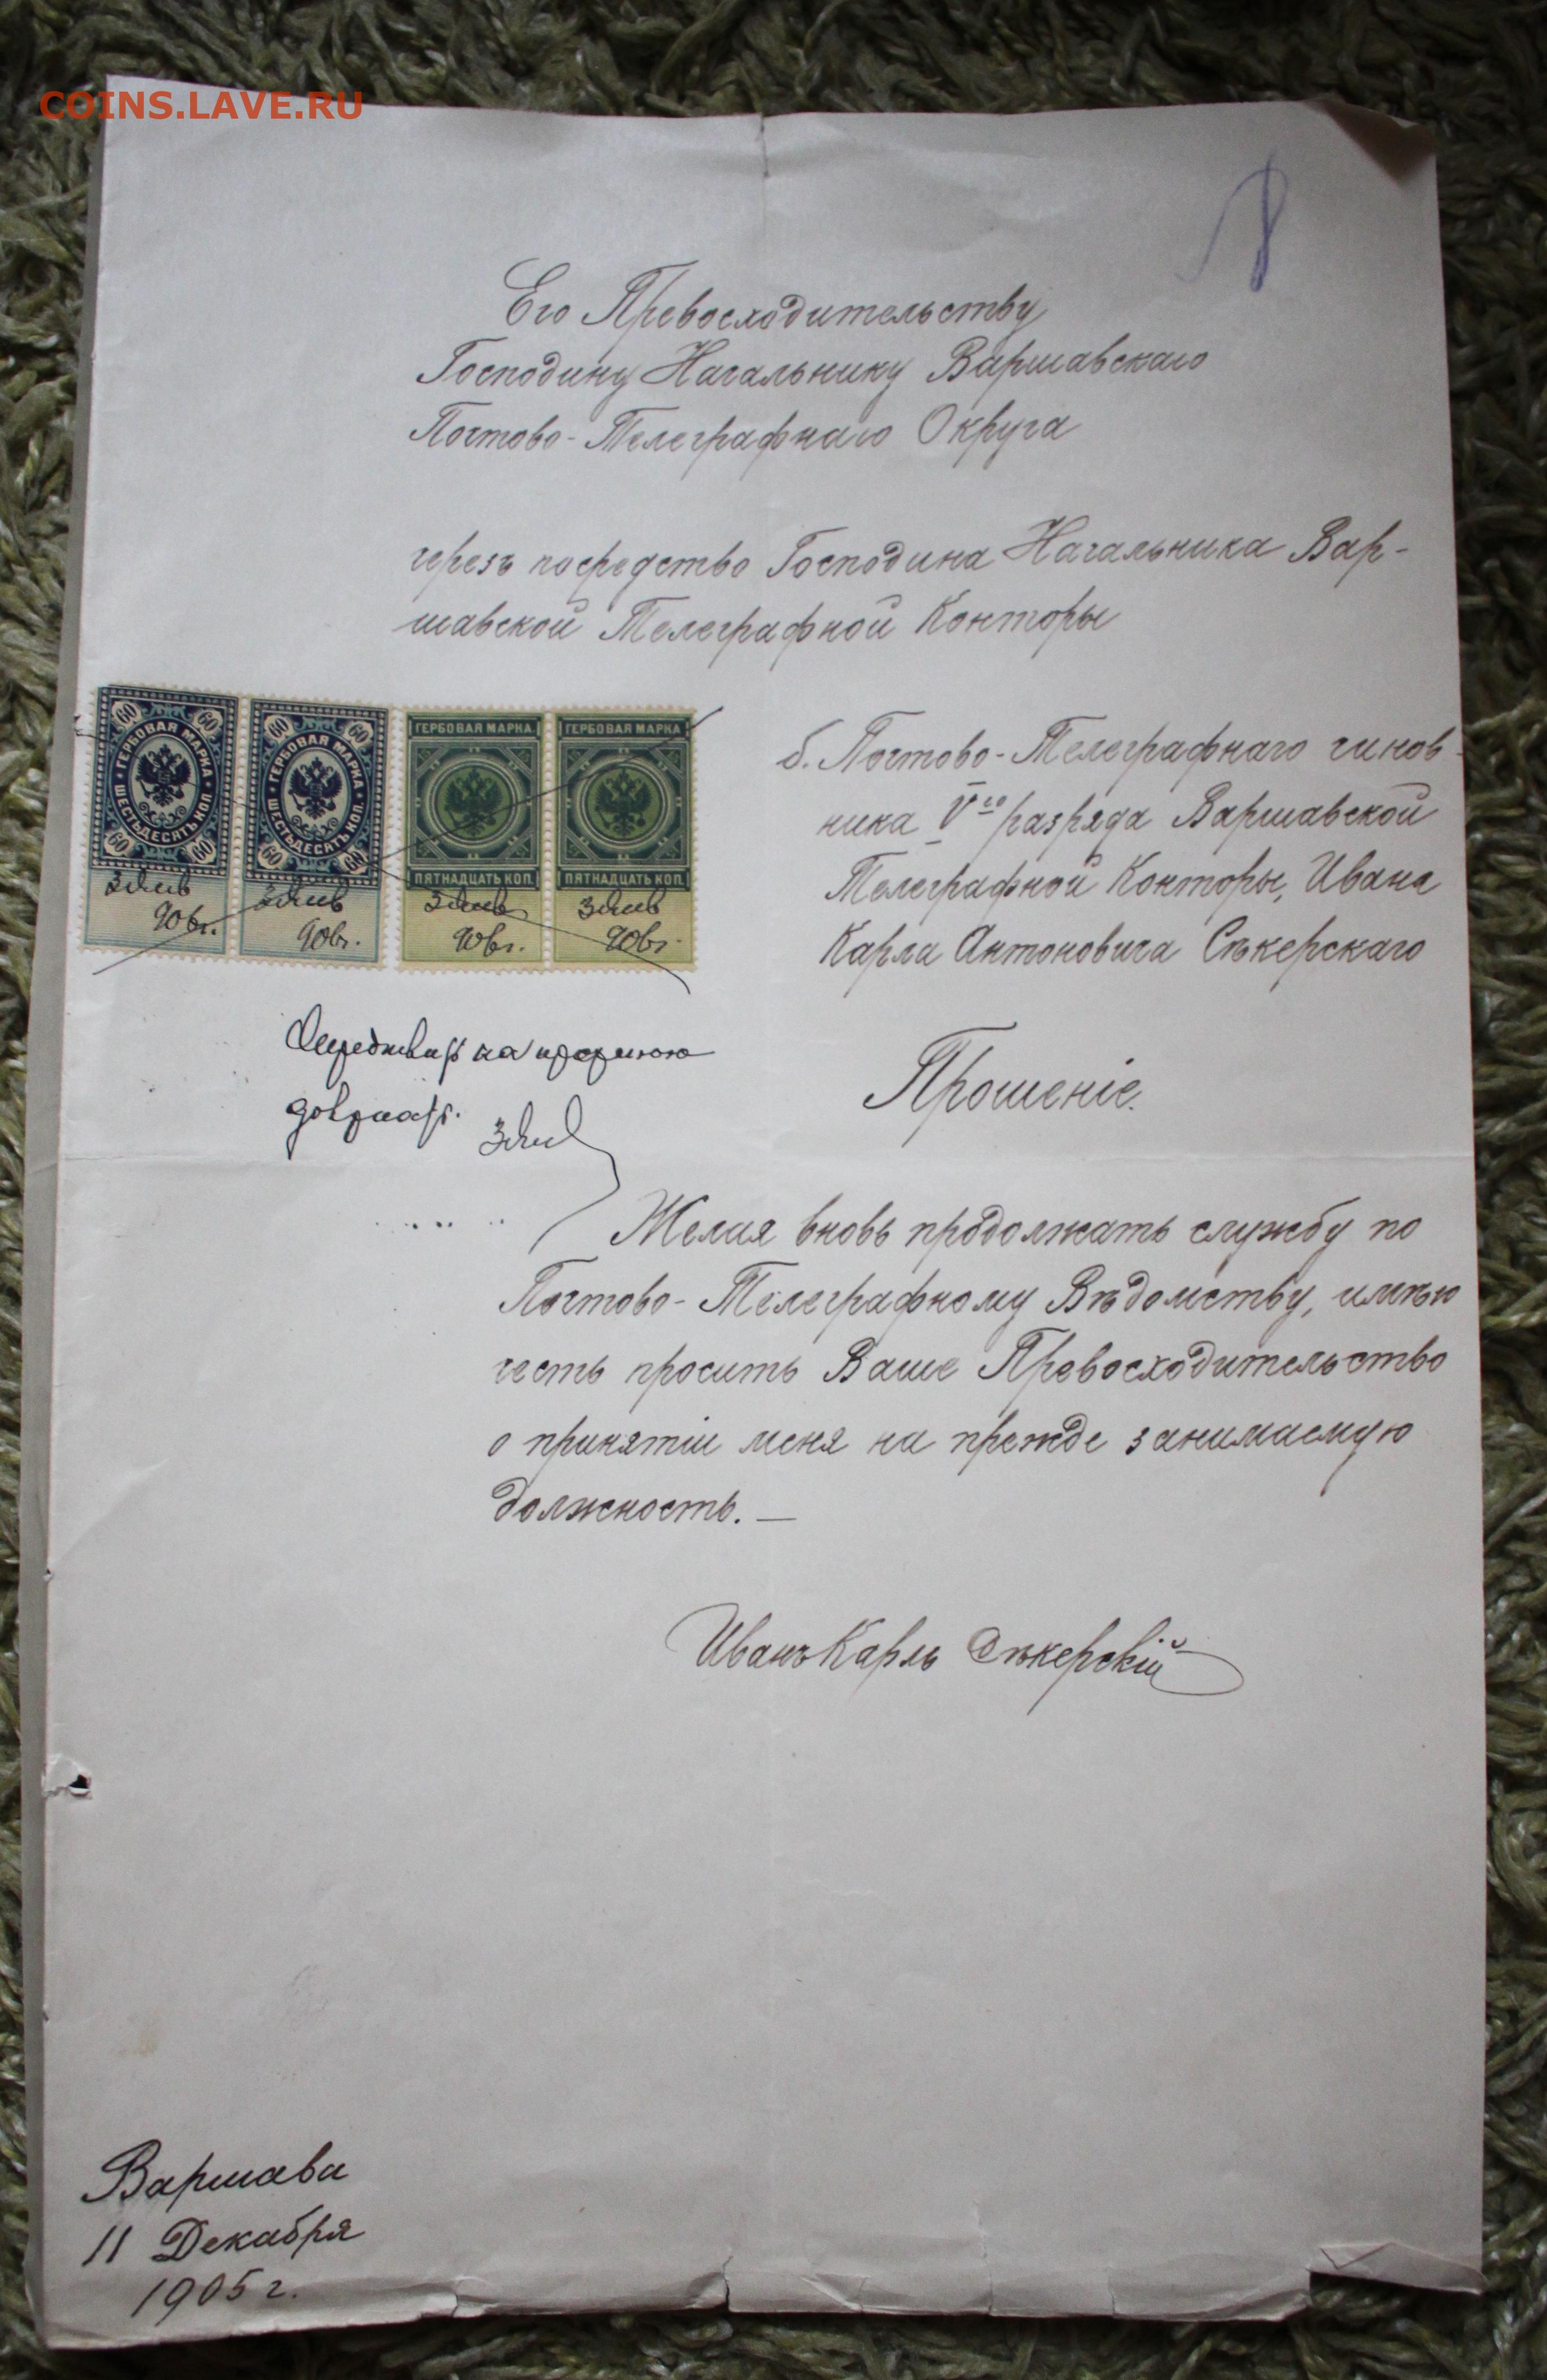 COINS.LAVE.RU
Его Превосходительству
Господину Начальнику Варшавскаго
Почтово-Телеграфнаго Округа
черезъ посредство Господина Начальника Вар-
шавской Телеграфной Конторы
60 60
ГЕРБОВАЯ МАРКА
ШЕСТЬДЕСЯТЪ КОП.
60 60
60 60
ГЕРБОВАЯ МАРКА
ШЕСТЬДЕСЯТЪ КОП.
60 60
ГЕРБОВАЯ МАРКА
ПЯТНАДЦАТЬ КОП.
ГЕРБОВАЯ МАРКА
ПЯТНАДЦАТЬ КОП.
б. Почтово-Телеграфнаго чинов-
ника V го разряда Варшавской
Телеграфной Конторы, Ивана
Карла Антоновича Сѣкерскаго
на
Прошеніе.
Желая вновь продолжать службу по
Почтово-Телеграфному Вѣдомству, имѣю
честь просить Ваше Превосходительство
о принятіи меня на прежде занимаемую
должность. —
Иванъ Карлъ Сѣкерскій
Варшава
11 Декабря
1905 г.